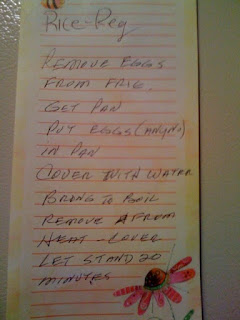 Rice-Reg
REMOVE EGGS
FROM FRIG.
GET PAN
PUT EGGS (ANY NO)
IN PAN
COVER WITH WATER
BRING TO BOIL
REMOVE FROM
HEAT - COVER
LET STAND 20
MINUTES